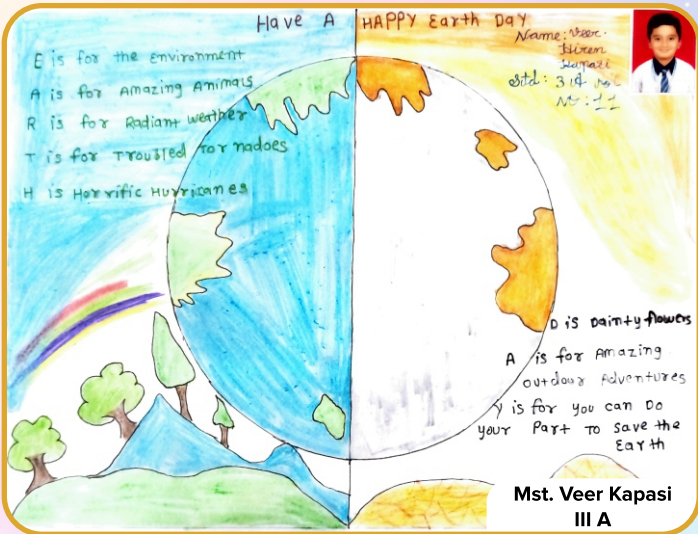 Have A HAPPY Earth Day
Name: Veer.
Hiren
Kapasi
Std: 3 A
No: 11
E is for the Environment
A is for Amazing Animals
R is for Radiant weather
T is for Troubled Tornadoes
H is Horrific Hurricanes
D is Dainty flowers
A is for Amazing
outdour Adventures
Y is for you can Do
your Part To save the
Earth
Mst. Veer Kapasi
III A